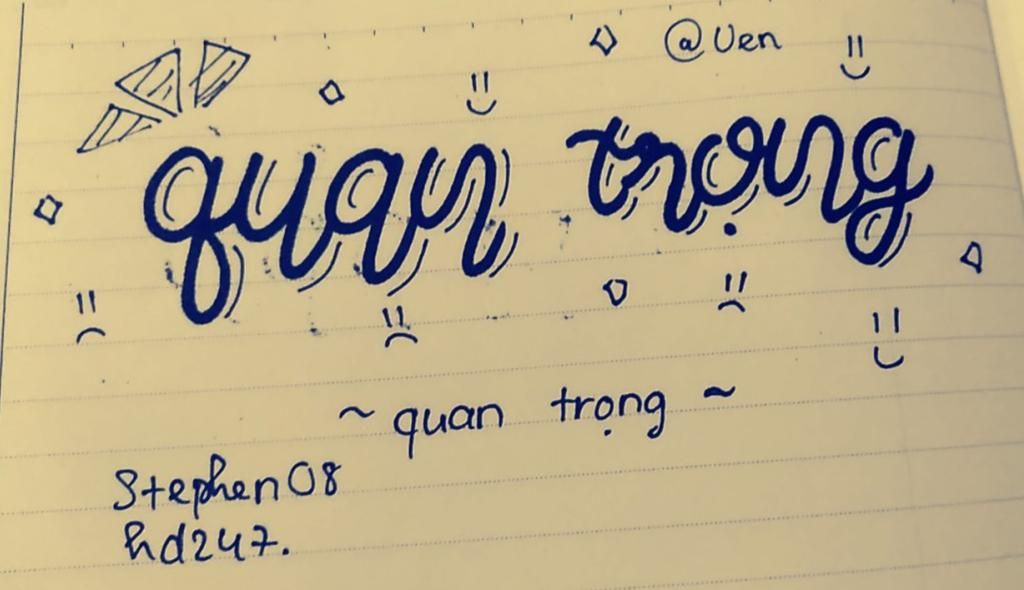 @Uen
quan trọng
~ quan trọng ~
Stephen08
hd247.